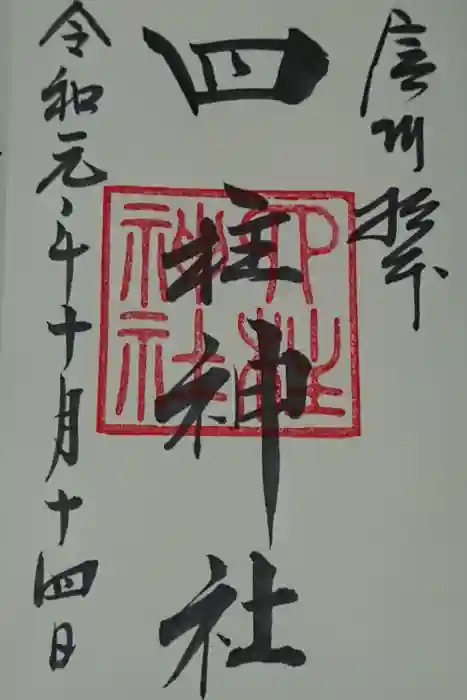 信州松本
四柱神社
四柱神社
令和元年十月十四日